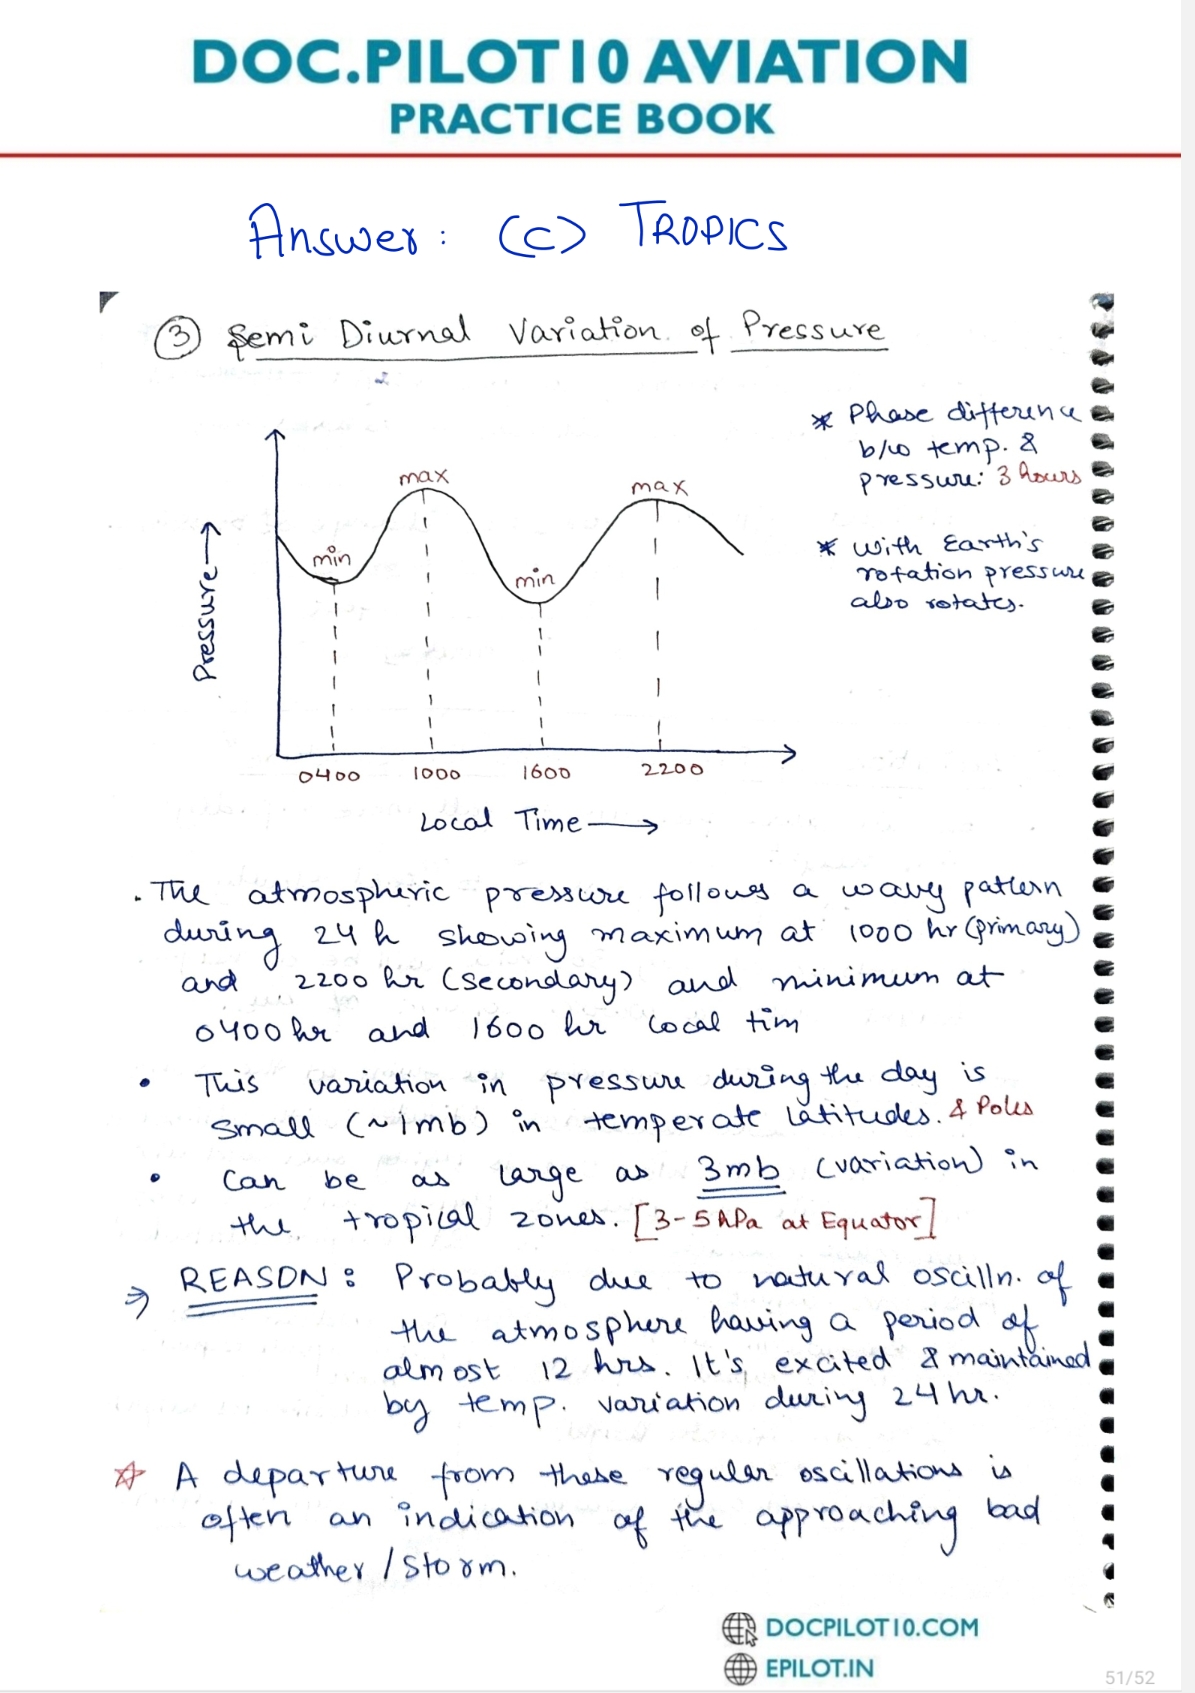 DOC.PILOT10 AVIATION
PRACTICE BOOK
Answer: (C) TROPICS
③ Semi Diurnal Variation of Pressure
* Phase difference
b/w temp. &
pressure: 3 hours
* With Earth's
rotation pressure
also rotates.
Pressure →
max
max
min
min
0400 1000 1600 2200
Local Time →
. The atmospheric pressure follows a wavy pattern
during 24 h showing maximum at 1000 hr (primary)
and 2200 hr (secondary) and minimum at
0400 hr and 1600 hr local tim
• This variation in pressure during the day is
small (~1mb) in temperate latitudes. & Poles
• Can be as large as 3mb (variation) in
the tropical zones. [3-5 hPa at Equator]
⇒ REASON : Probably due to natural oscilln. of
the atmosphere having a period of
almost 12 hrs. It's excited & maintained
by temp. variation during 24 hr.
☆ A departure from these regular oscillations is
often an indication of the approaching bad
weather / storm.
DOCPILOT10.COM
EPILOT.IN
51/52